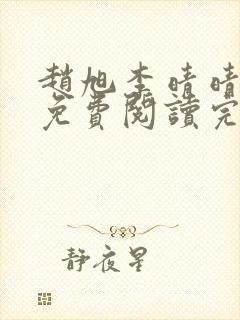 趙旭李晴晴
免費閱讀完
靜夜星